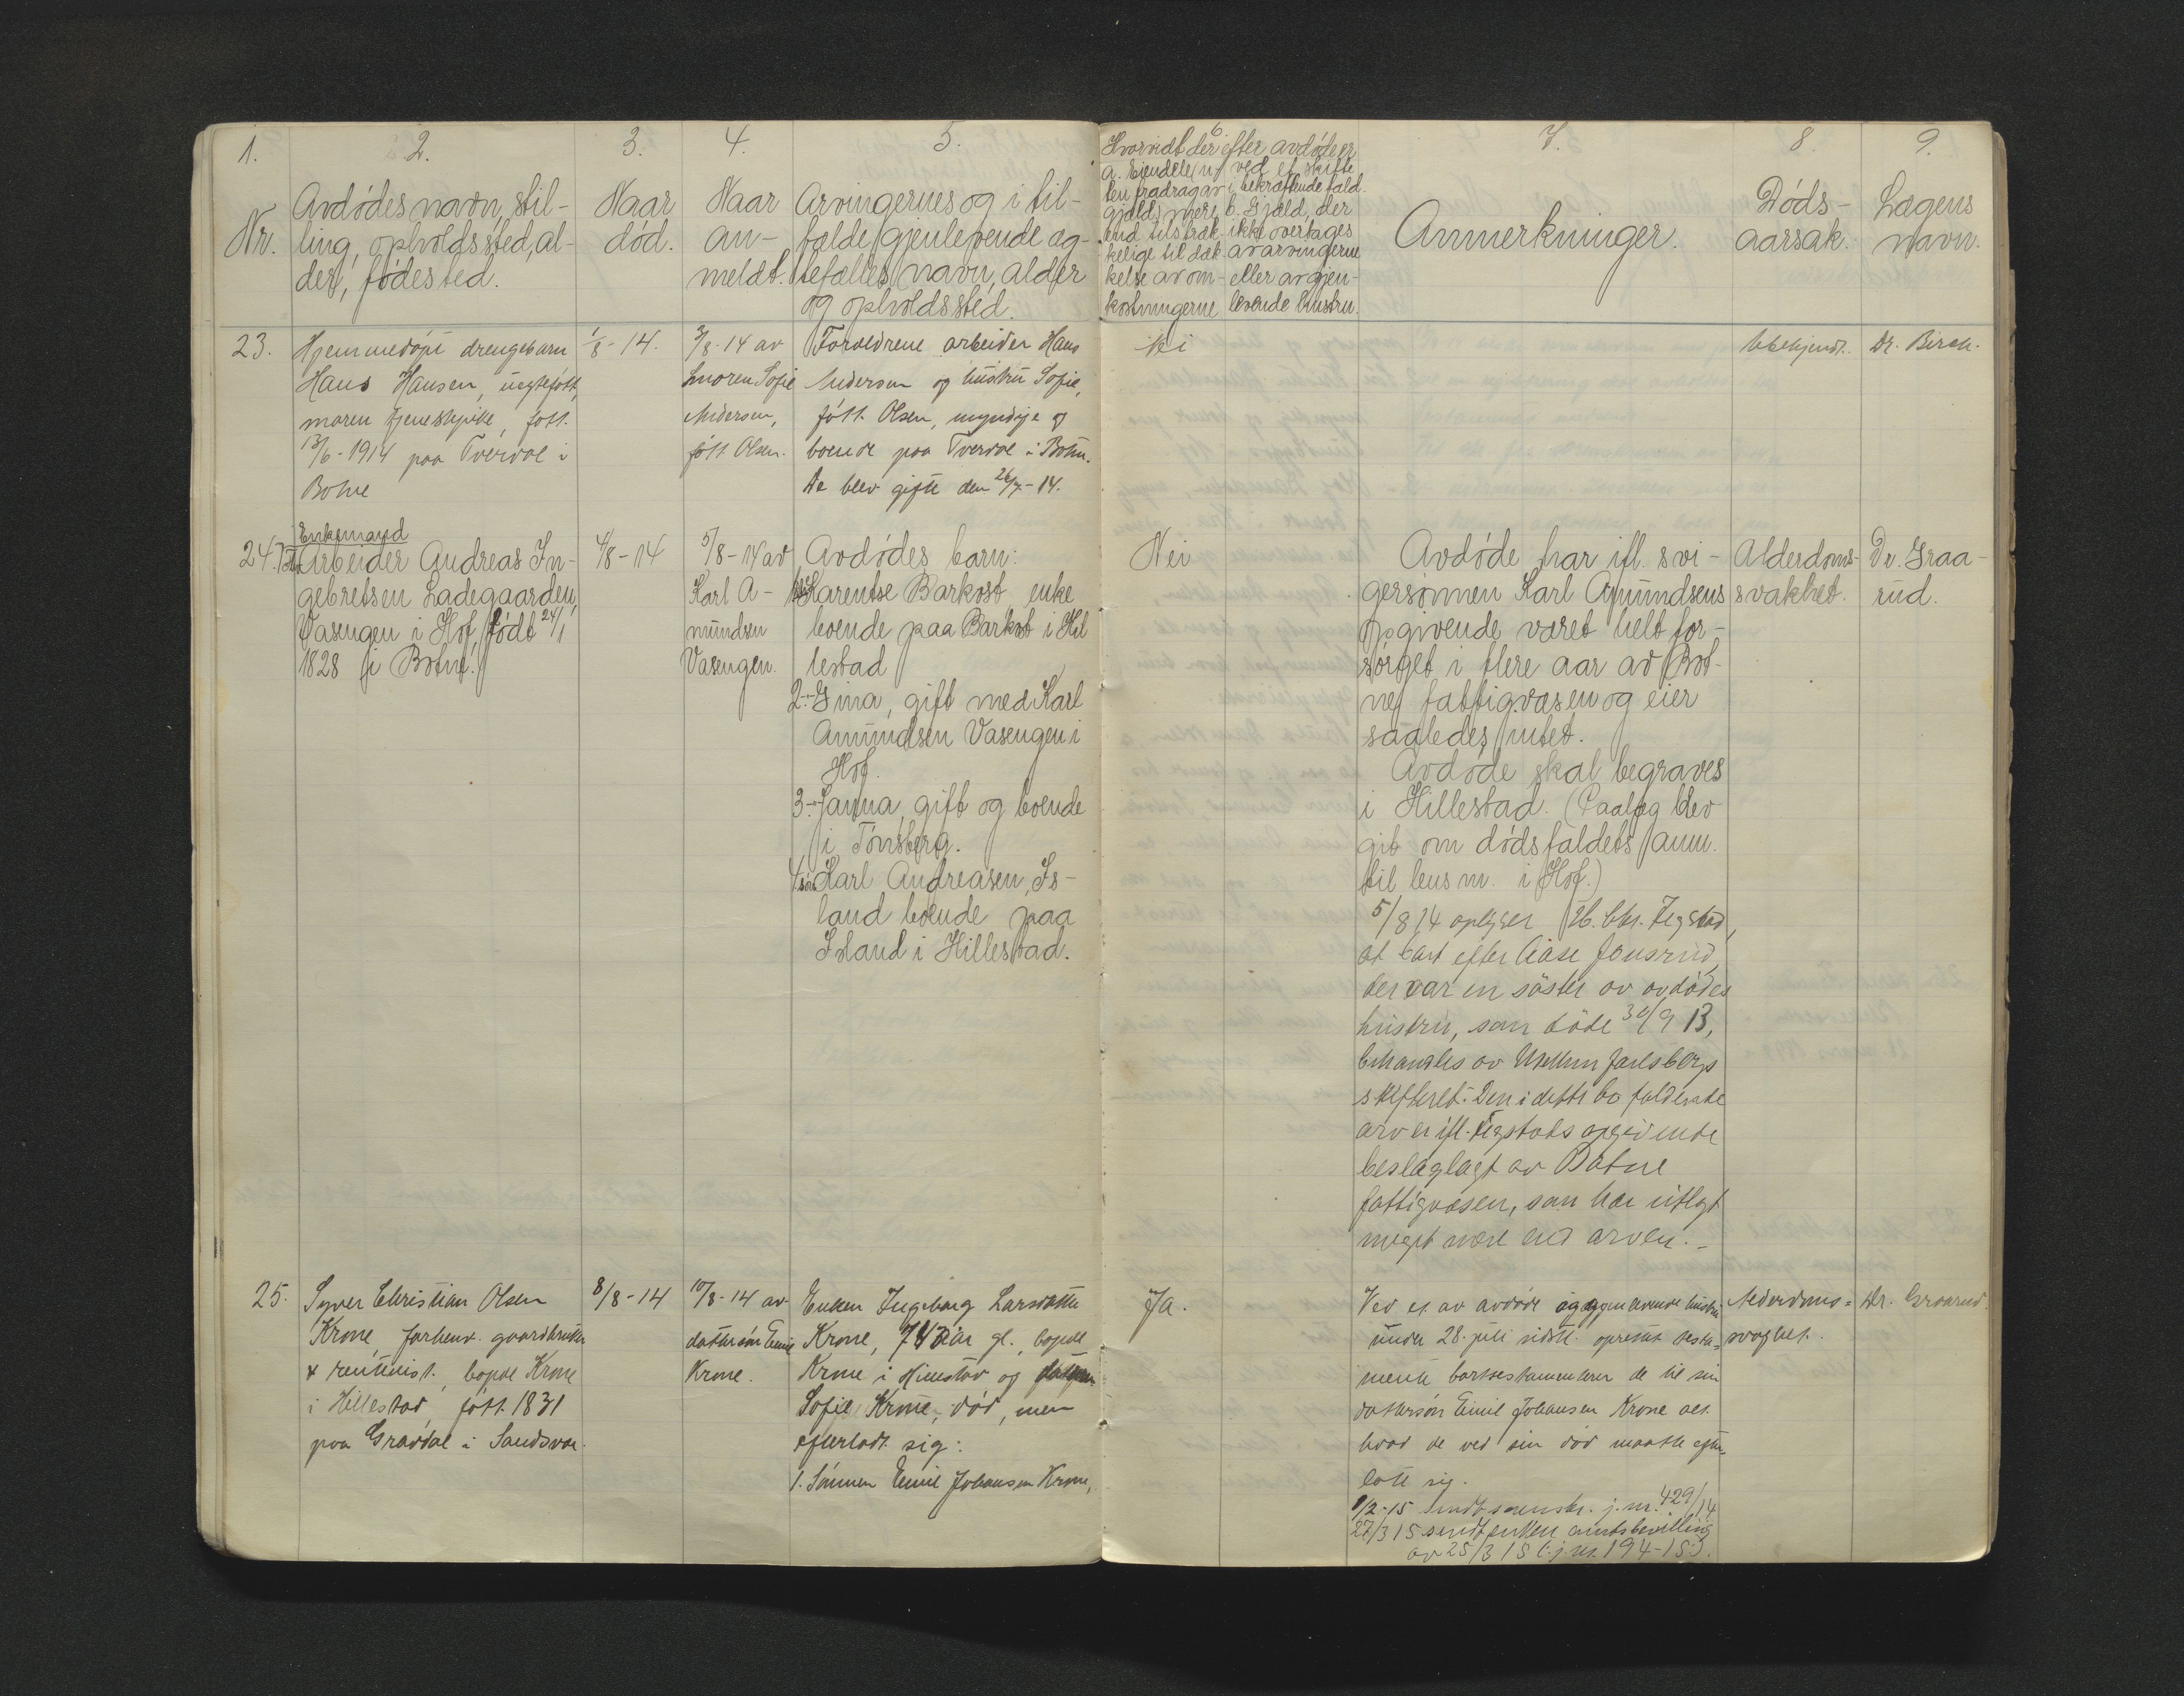 1.
2.
3.
4.
5.
Nr.
Avdödes navn, stil-
ling, opholdssted, al-
der, fødested.
Naar
död.
Naar
an-
meldt.
Arvingernes og i til-
fælde gjenlevende æg-
tefælles navn, alder
og opholdssted.
6
Hvorvidt der efter avdöde er
a. Eiendele (ut
ten fradrag av
gjæld) mere
end tilstræk-
kelige til dæk-
kelse av om-
kostningerne
ved et skifte
i bekræftende fald.
b. Gjæld, der
ikke overtages
av arvingerne
eller av gjen-
levende hustru.
7.
Anmerkninger.
8.
Döds-
aarsak.
9.
Lægens
navn.
23.
Hjemmedöpt drengebarn
Hans Hansen, uegtefött,
moren tjenestepike, fött
13/6-1914 paa Tverdal i
Botne
1/8-14.
3/8-14 av
moren Sofie
Andersen,
fött Olsen.
Forældrene arbeider Hans
Andersen og hustru Sofie,
fött Olsen, myndige og
boende paa Tverdal i Botne.
De blev gifte den 26/7-14.
Nei
Ubekjendt.
Dr. Birch.
24.
Enkemand
Arbeider Andreas In-
gebretsen Ladegaarden,
Vasengen i Hof, födt 24/1
1828 i Botne.
4/8-14
5/8-14 av
Karl A-
mundsen
Vasengen.
Avdödes barn:
Karentse Barkost enke
boende paa Barkost i Hil
lestad
2. Gina, gift med Karl
Amundsen Vasengen i
Hof.
3. Janna, gift og boende
i Tönsberg.
4. sön Karl Andreasen, Is-
land boende paa
Island i Hillestad.
Nei
Avdöde har ifl. svi-
gersönnen Karl Amundsens
opgivende været helt for-
sörget i flere aar av Bot-
ne fattigvæsen og eier
saaledes intet.
Avdöde skal begraves
i Hillestad. (Paalæg blev
git om dödsfaldets anm.
til lensm. i Hof.)
5/8 14 oplyser
at bart efter Aase Jonsrud,
der var en söster av avdödes
hustru, som döde 30/9 13,
behandles av Mellem Jarlsbergs
skifteret. Den i dette bo faldende
arv er ifl. Tegstads opgivende
beslaglagt av Botne
fattigvæsen, som har utlagt
meget mere end arven.-
Alderdoms-
svakhet.
Dr. Graa-
rud.
25.
Syver Christian Olsen
Krone, forhenv. gaardbruker
& rentenist, bopæl Krone
i Hillestad, fött 1831
paa Gravdal i Sandsvær.
8/8-14
10/8-14 av
dattersön Emil
Krone.
Enken Ingeborg Larsdatter
Krone, 74 aar gl., bopæl
Krone i Hillestad og datteren
Sofie Krone, död, men
efterlodt sig:
1. Sönnen Emil Johansen Krone,
Ja.
Ved et av avdöde og gjenlevende hustru
under 28. juli sidstl. oprettet testa-
mente bortestamenterer de til sin
dattersön Emil Johansen Krone alt
hvad de ved sin död maatte efter-
late sig.
1/2-15 sendt sorenskr. j. nr. 429/14
27/3 15 sendt enken amtsbevilling
av 25/3 15 (j. nr. 194-15).
Alderdoms-
svaghet.
Dr. Graarud.